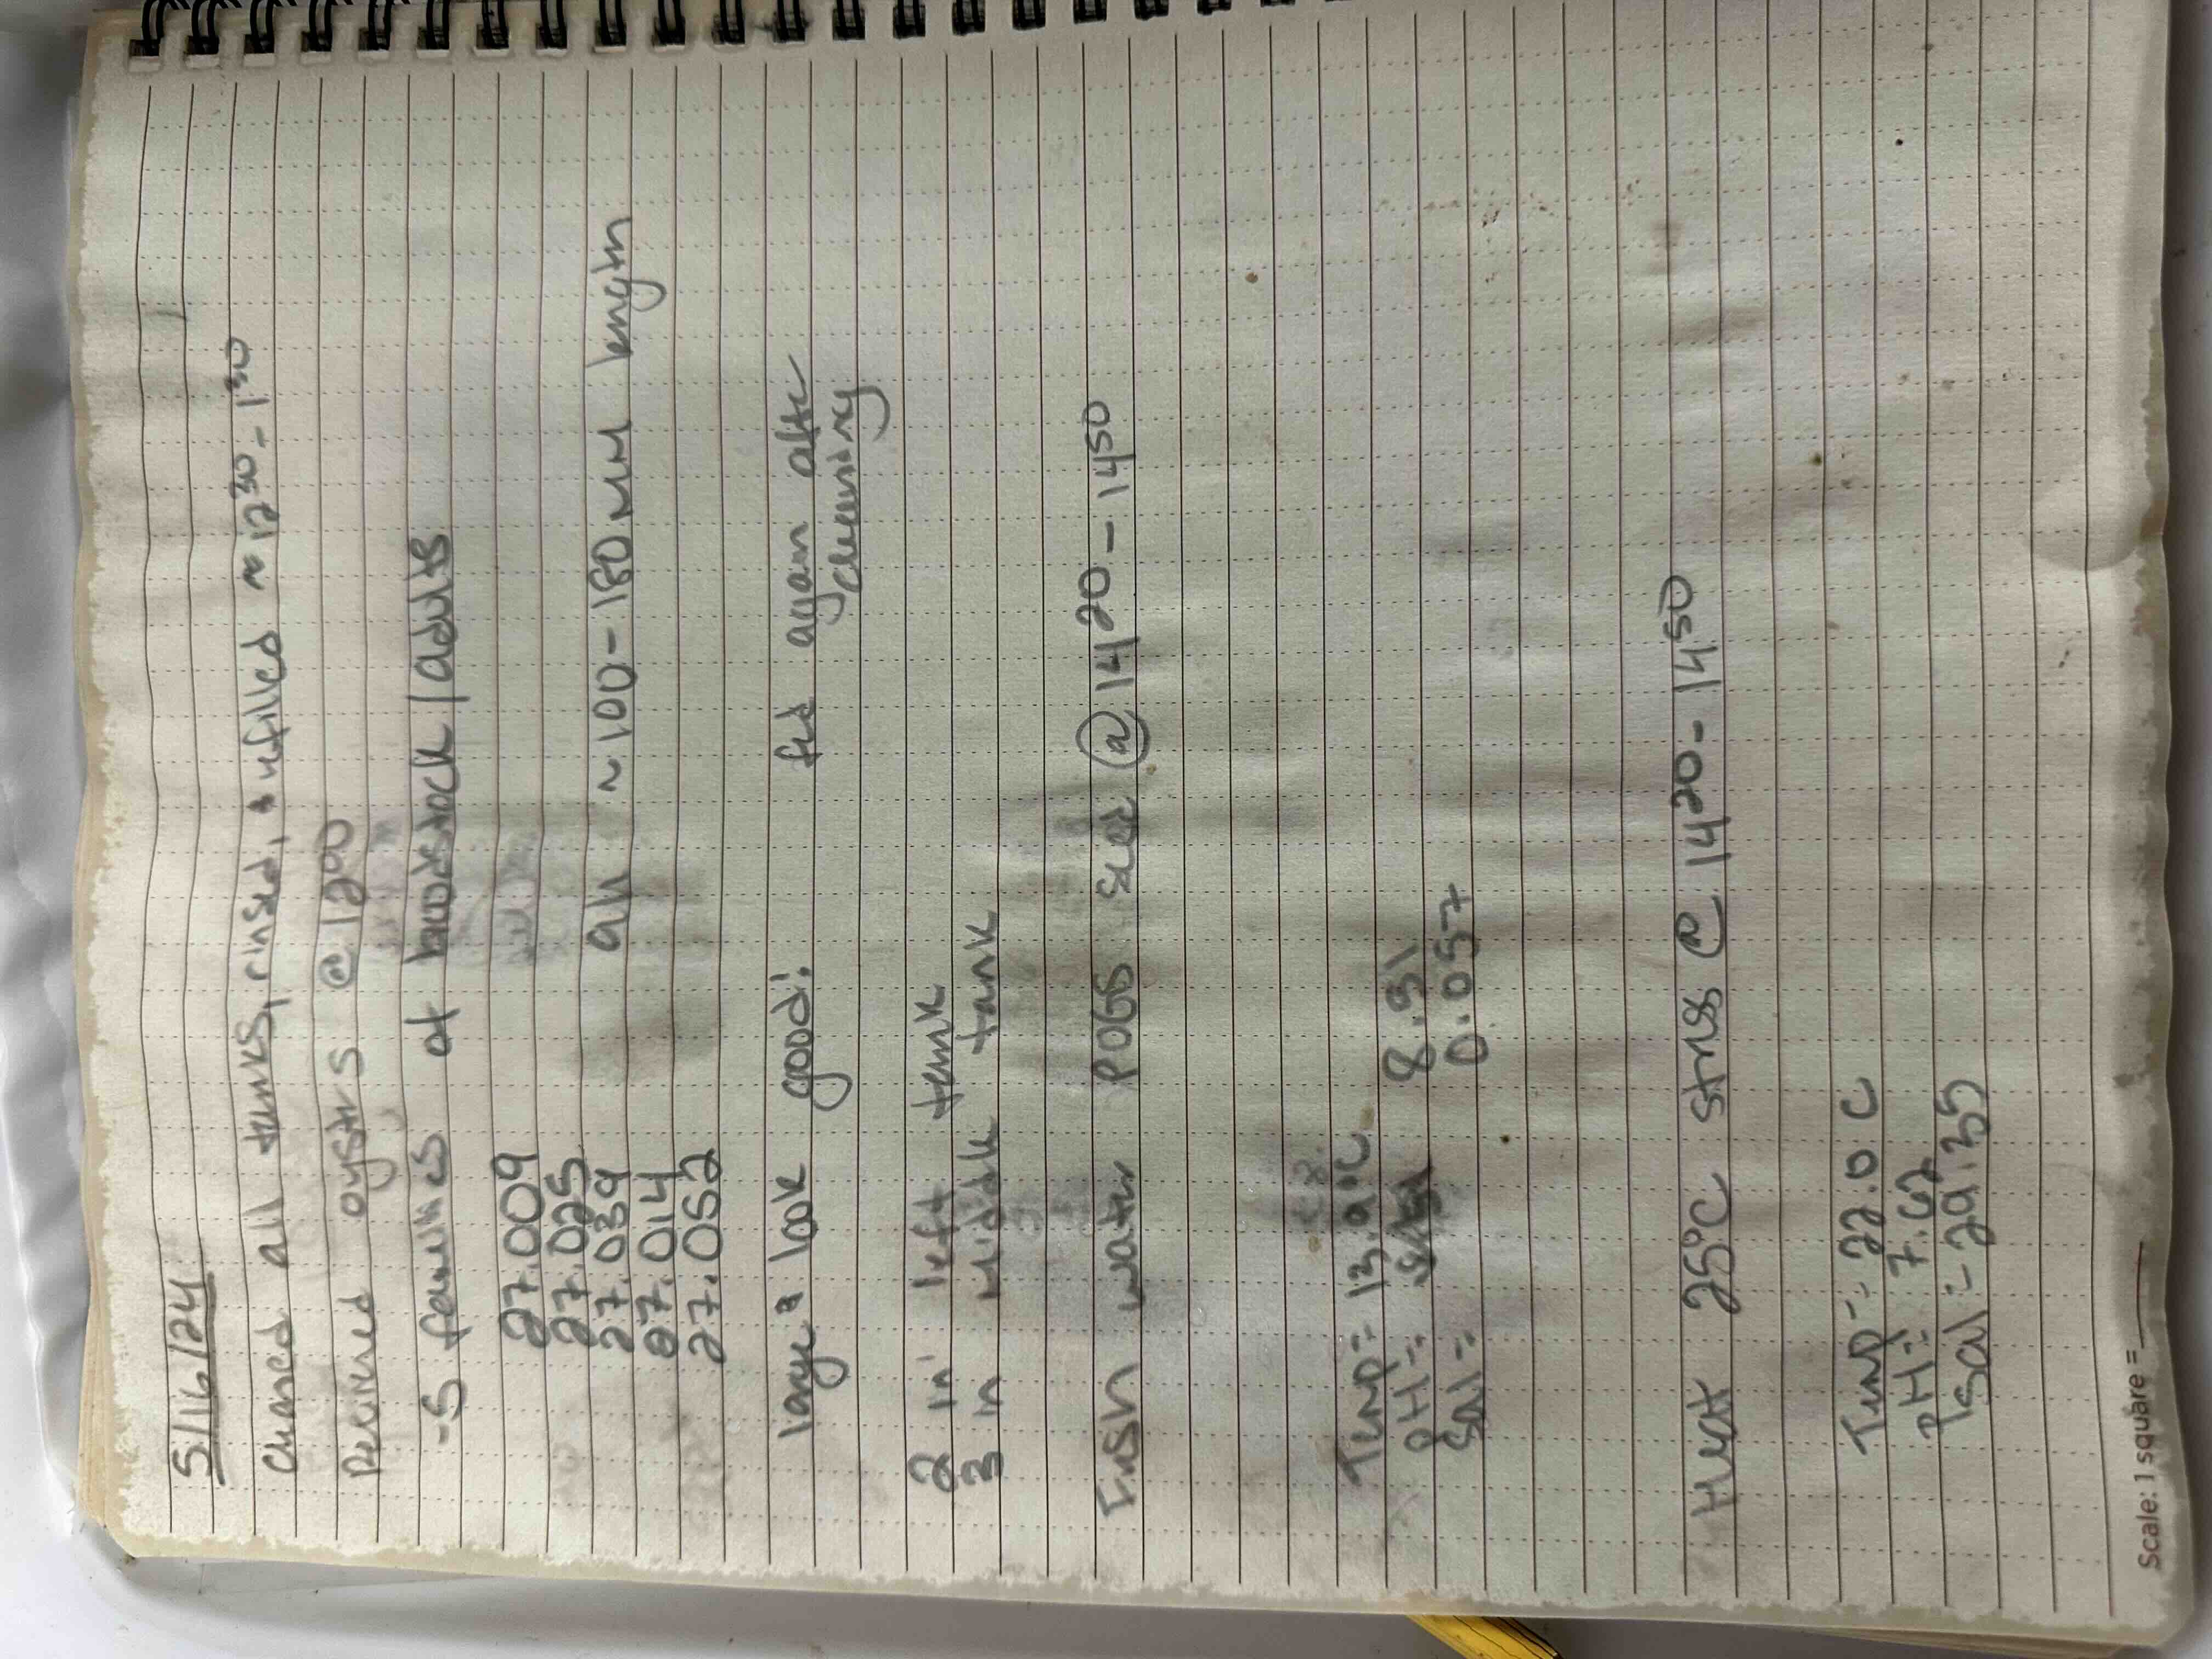 5/16/24
Cleaned all tanks, rinsed, + refilled ~ 12³⁰ - 1³⁰
Received oysters @ 12⁰⁰
- 5 families of broodstock / adults
27.009
27.025
27.039 all ~ 100-180 mm length
27.014
27.052
large + look good! fed again after
cleaning
2 in left tank
3 in middle tank
Fresh water POGS seed @ 14²⁰ - 14⁵⁰
Temp = 13.9°C
pH = 8.91
Sal = 0.057
Heat 25°C stress @ 14²⁰ - 14⁵⁰
Temp = 22.0 C
pH = 7.62
Sal = 29.35
Scale: 1 square =